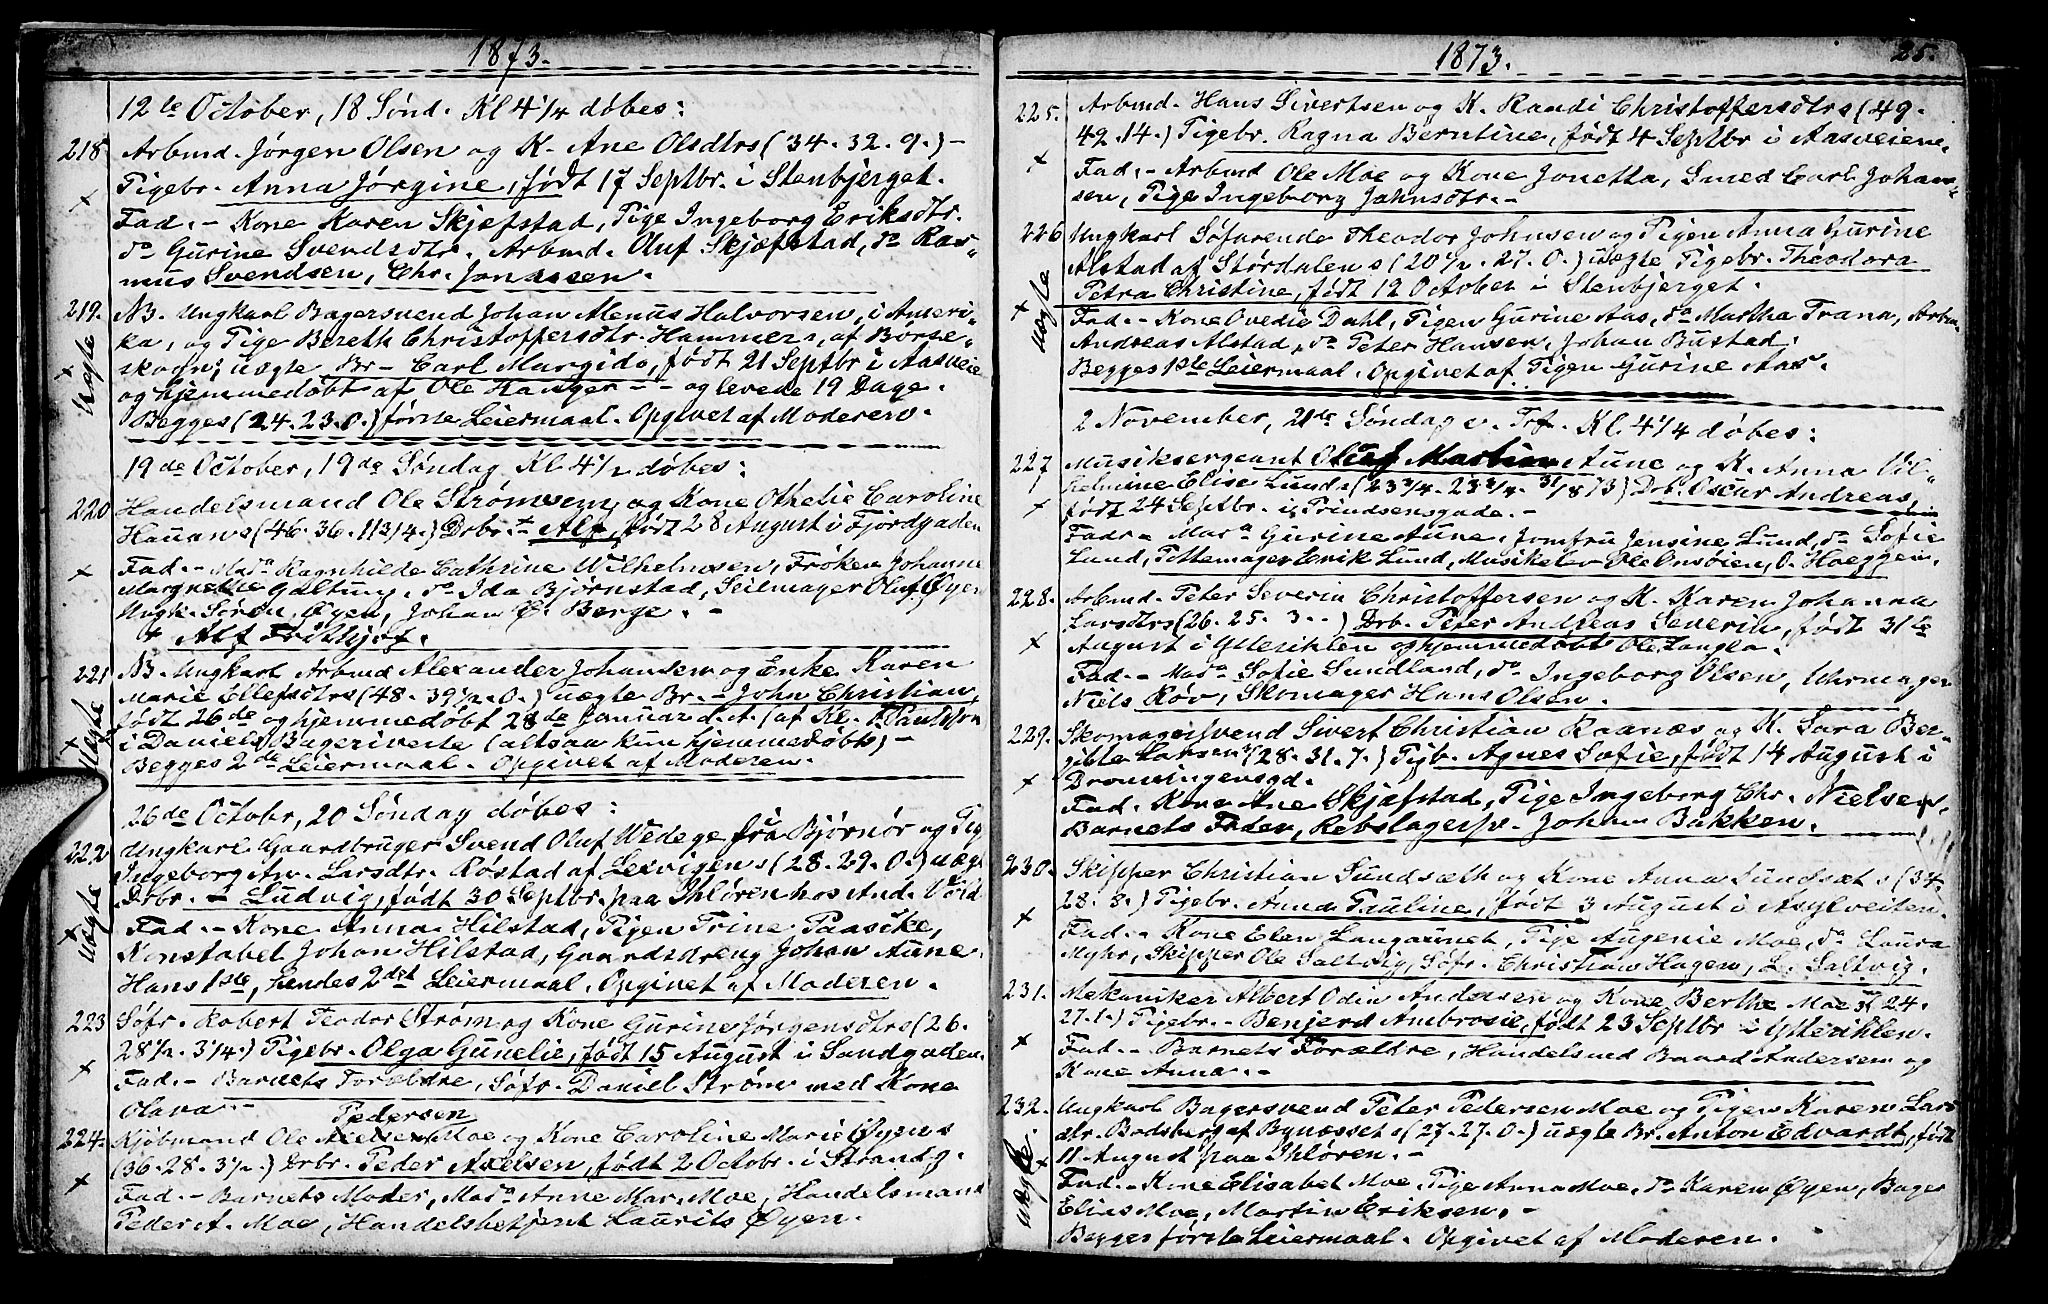 1873.
12te October, 18 Sønd. Kl 4 1/4 døbes:
218 Arbmd. Jørgen Olsen og K. Ane Olsdtrs (34. 32. 9.) –
Pigebr. Anna Jørgine, født 17 Septbr. i Stenbjerget.
Fad. – Kone Karen Skjefstad, Pige Ingeborg Eriksdtr.
do Gurine Svendsdtr. Arbmd. Oluf Skjefstad, do Ras„
mus Svendsen, Chr. Jonassen.
219. NB. Ungkarl Bagersvend Johan Menus Halvorsen, i Ameri„
ka, og Pige Bereth Christoffersdtr. Hammer, af Børse„
skogn; uægte Br – Carl Margido, født 21 Septbr i Aasveie
og hjemmedøbt af Ole Hanger – – og levede 19 Dage.
Uægte
Begges (24. 23. 0.) første Leiermaal. Opgivet af Moderen.
19de October, 19de Søndag Kl 4 1/2 døbes:
220 Handelsmand Ole Strømsem og Kone Othelie Caroline
Hauans (46. 36. 11 3/4.) Drbr. + Alf, født 28 August i Fjordgaden
Fad. – Mad. Ragnhilde Cathrine Wilhelmsen, Frøken Johanne
Margrethe Galtung, do Ida Bjørnstad, Seilmager Oluf Øyen
Ungk. Sören Øyen, Johan C. Berge. –
+ Alf Frithjof.
221 NB. Ungkarl Arbmd Alexander Johansen og Enke Karen
Marie Ellefsdtrs (48. 39 1/2. 0.) uægte Br. – John Christian,
født 26de og hjemmedøbt 28de Januar d. A. (af Kl. Paulsen
i Daniels Bageriveite (altsaa kun hjemmedøbt) –
Uægte
Begges 2de Leiermaal. Opgivet af Moderen.
26de Octobr, 20 Søndag døbes:
222 Ungkarl Gaardbruger Svend Oluf Wedege fra Bjørnör og Pig
Ingeborg An. Larsdtr. Røstad af Lexvigen s (28. 29. 0.) uægt
Drbr. – Ludvig, født 30 Septbr. paa Ihlören hos And. Vord
Fad. – Kone Anna Hilstad, Pigen Trine Paaske,
Uægte
Konstabel Johan Hilstad, Gaardsdreng Johan Aune.
Hans 1ste, hendes 2det Leiermaal. Opgivet af Moderen.
223 Söfr. Robert Teodor Strøm og Kone Gurine Jørgensdtrs (26.
28 1/2. 3 1/4.) Pigebr. Olga Gunelie, født 15 August i Sandgaden.
Fad. – Barnets Forældre, Söfr. Daniel Strøm med Kone
Olava. –
Pedersen
224. Kjøbmand Ole Nielsen Moe og Kone Caroline Marie Øyens
(36. 28. 3 1/2.) Drbr. Peder Axelsen, født 2 Octobr. i Strandg.
Fad. – Barnets Moder, Mad. Anne Mar. Moe, Handelsmand
Peder A. Moe, Handelsbetjent Laurits Øyen.
1873.
25.
225. Arbmd. Hans Sivertsen og K. Randi Christoffersdtrs (49.
42. 14.) Pigebr. Ragna Berntine, født 4 Septbr i Aasveiene.
Fad. – Arbmd Ole Moe og Kone Jonetta, Smed Carl Johan„
sen, Pige Ingeborg Jahnsdtr. –
226 Ungkarl Søfarende Theodor Johnsen og Pigen Anna Gurine
Alstad af Størdalen s (20 1/2. 27. 0.) uægte Pigebr. Theodora
Petra Christine, født 12 October i Stenbjerget.
Uægte
Fad. – Kone Ovedie Dahl, Pigen Gurine Aas, do Martha Trana, Arbm.
Andreas Alstad, do Peter Hansen, Johan Bustad.
Begges 1ste Leiermaal. Opgivet af Pigen Gurine Aas.
2 November, 21de Søndag e. Trf. Kl. 4 1/4 døbes:
227 Musiksergeant Oluf Martin Aune og K. Anna Vil„
helmine Elise Lunds (23 3/4. 23 3/4. 31/8 73) Drb. Oscar Andreas,
født 24 Septbr. i Prindsensgade. –
Fadr – Mada Gurine Aune, Jomfru Jensine Lund, do Sofie
Lund, Pottemager Erik Lund, Musikelev Ole Onsöien, O. Hoeggen.
228. Arbmd. Peter Severin Christoffersen og K. Karen Johanna
Larsdtrs (26. 25. 3. .) Drb. Peter Andreas Severin, født 31te
August i Ytterihlen og hjemmedøbt Ole Langlo.
Fad. – Mada Sofie Sundland, do Ingeborg Olsen, Uhrmager
Niels Röv, Skomager Hans Olsen.
229. Skomagersvend Sivert Christian Raanæs og K. Sara Ber„
gitte Larsens (28. 31. 7.) Pigb. Agnes Sofie, født 14 August i
Dronningensgd.
Fad. Kone Ane Skjefstad, Pige Ingeborg Chr. Nielsen,
Barnets Fader, Rebslagersv. Johan Bakken.
230. Skipper Christian Sundsæth og Kone Anna Sundsæt s (34.
28. 8.) Pigebr. Anna Pauline, født 3 August i Asylveiten.
Fad. – Kone Elen Langaunet, Pige Augenie Moe, do Laura
Myhr, Skipper Ole Saltvig, Söfr. Christian Hagen, L. Saltvig.
231. Mekaniker Albert Odin Andersen og Kone Berthe Moe s (24.
27. 1.) Pigebr. – Benjerd Ambrosie, født 23 Septbr i Ytterihlen.
Fad. – Barnets Forældre, Handelsmd Baard Andersen og
Kone Anna. –
232. Ungkarl Bagersvend Peter Pedersen Moe og Pigen Karen Lars
dtr. Bodsberg af Bynæsset s (27. 27. 0.) uægte Br. Anton Edvardt, født
11 August paa Ihlören. –
Uægte
Fad. – Kone Elisabet Moe, Pige Anna Moe, do Karen Øyen, Bager
Elias Moe, Martin Eriksen. –
Begges første Leiermaal. Opgivet af Moderen.